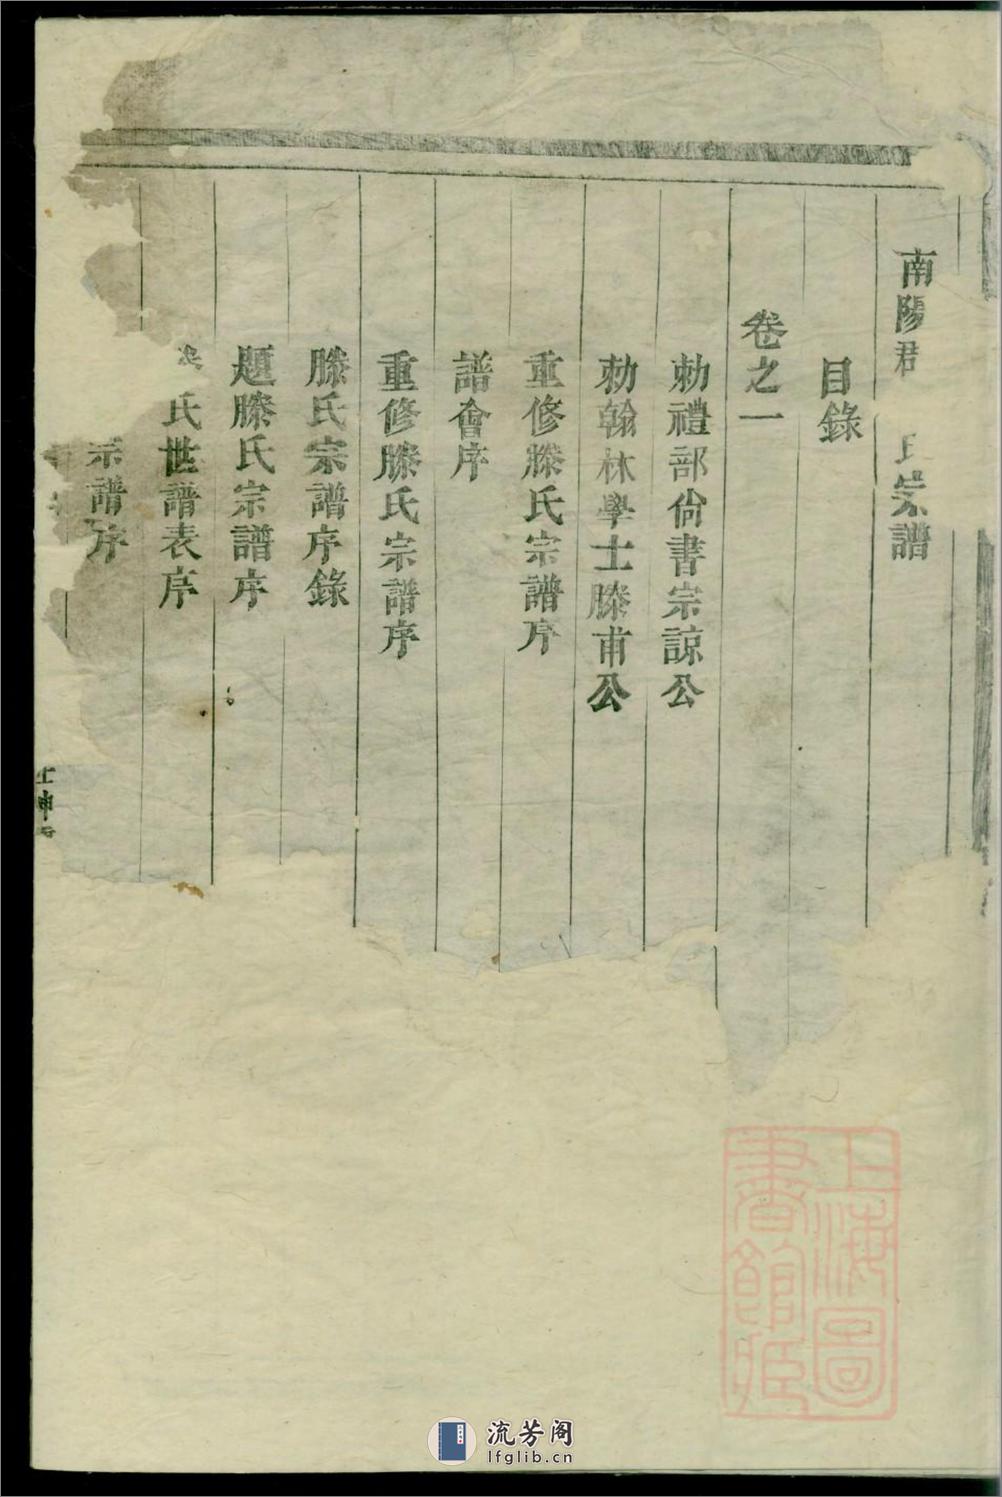 南陽君 氏宗譜
目錄
卷之一
勅禮部尙書宗諒公
勅翰林學士滕甫公
重修滕氏宗譜序
譜會序
重修滕氏宗譜序
滕氏宗譜序錄
題滕氏宗譜序
氏世譜表序
宗譜序
上海圖
書館藏
流芳阁
lfglib.cn